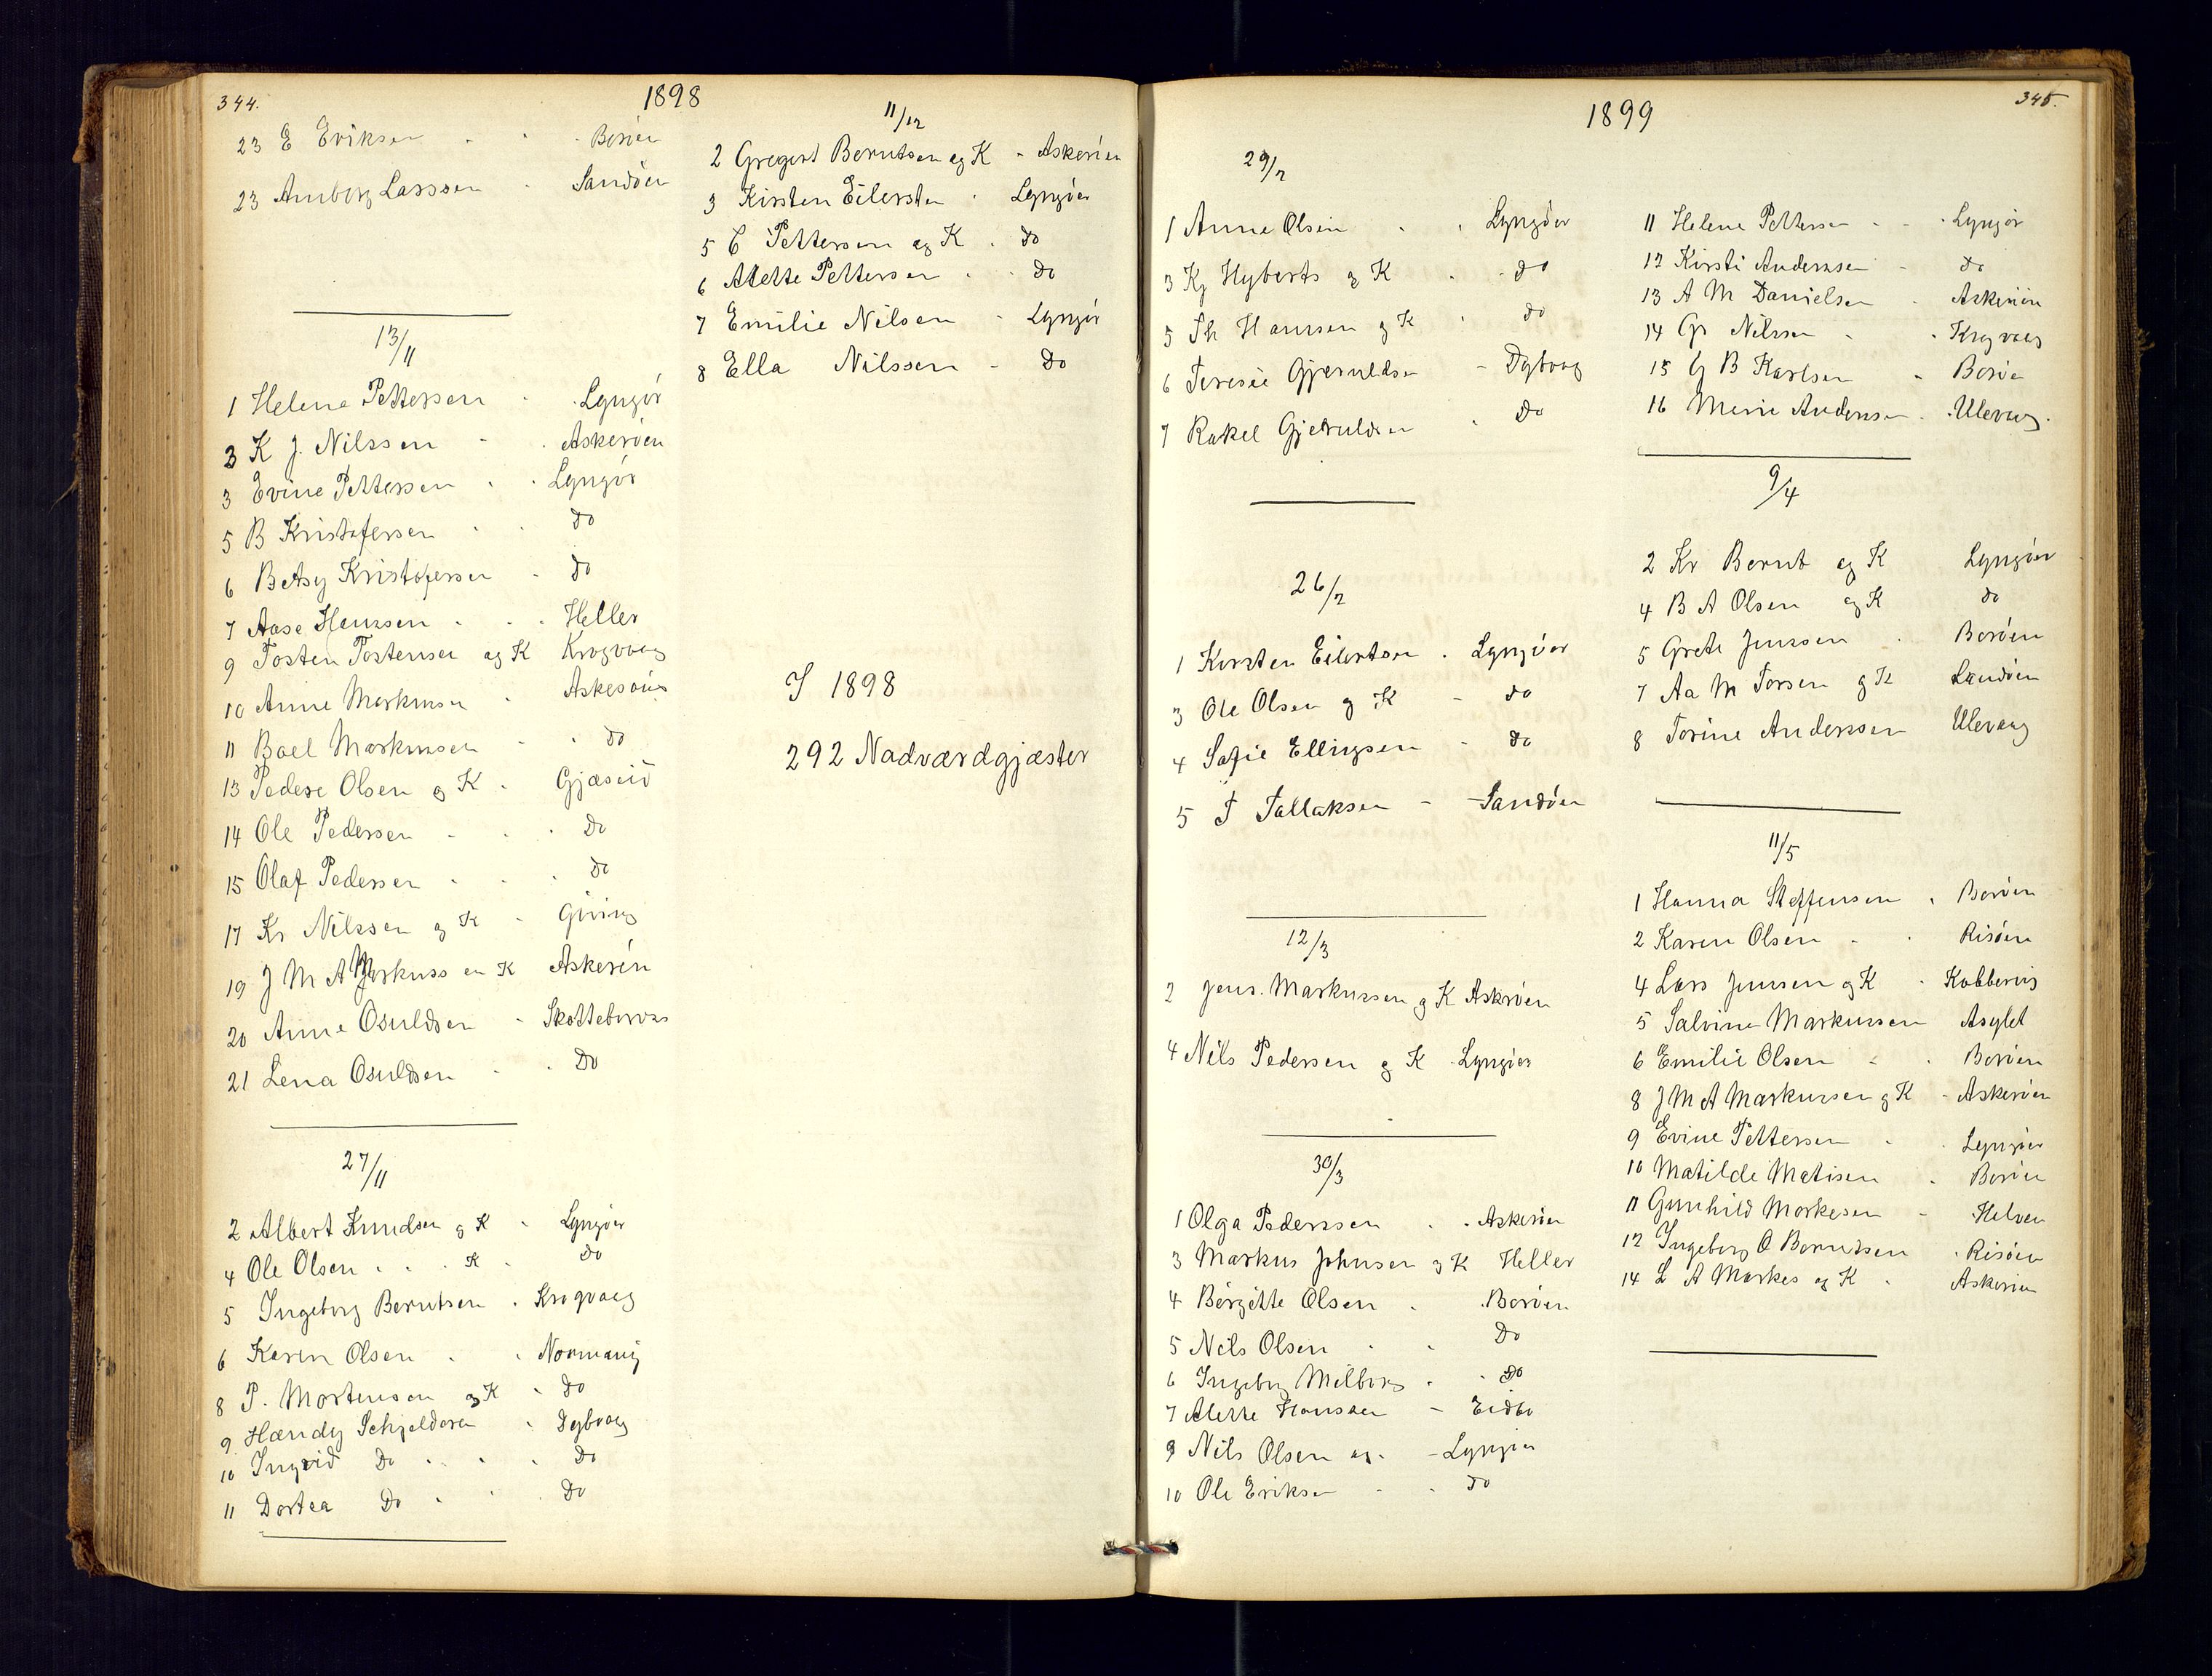 344.
1898
23 E Eriksen - - Borøen
23 Amborg Larssen - Sandøen
13/11
1 Helene Pettersen - Lyngør
3 K J. Nilssen - - Askerøen
3 Evine Pettersen - - Lyngør
5 B Kristofersen - - do
6 Betsy Kristofersen - do
7 Aase Hanssen - - - Heller
9 Tosten Tostensen og K Krogvaag
10 Anne Markusen - Askerøen
11 Boel Markussen - - do
13 Pedere Olsen og K - Gjæseid
14 Ole Pedersen - - - Do
15 Olaf Pedersen - - - Do
17 Kr Nilssen og K - Giving
19 J M A Markussen K Askerøn
20 Anne Osuldsen - Skottebervas
21 Lena Osuldsen - - Do
27/11
2 Albert Knudsen og K - Lyngøer
4 Ole Olsen - - - K - Do
5 Ingeborg Berntsen - Krogvaag
6 Karen Olsen - - Normanvig
8 P. Mortensen og K - Do
9 Handy Schjeldsen - Dybvaag
10 Ingvid Do - - - Do
11 Dortea Do - - Do
11/12
2 Gregert Berntsen og K - Askerøen
3 Kirsten Eilersten - Lyngøer
5 C Pettersen og K - do
6 Alette Pettersen - - do
7 Emilie Nilsen - Lyngør
8 Ella Nilssen - Do
I 1898
292 Nadværdgjæster
345.
1899
29/2
1 Anne Olsen - - Lyngøer
3 Kj Hyberts og K - - do
5 Th Hansen og K - do
6 Teresie Gjeruldsen - Dybvaag
7 Rakel Gjeruldsen - Do
26/2
1 Kirsten Eilertsen - Lyngøer
3 Ole Olsen og K - do
4 Sofie Ellingsen - do
5 T Tallaksen - Sandøen
12/3
2 Jens. Markussen og K Askerøen
4 Nils Pedersen og K - Lyngøer
30/3
1 Olga Pedersen - - Askerøen
3 Markus Johnsen og K Heller
4 Børgitte Olsen - Borøen
5 Nils Olsen - - Do
6 Ingeborg Melberg - - Do
7 Alette Hanssen - Eidbo
9 Nils Olsen og - Lyngør
10 Ole Eriksen - - do
11 Helene Pettersen - - Lyngør
12 Kirsti Andersen - do
13 A M Danielsen - Askerøen
14 Gr Nilssen - - Krogvaag
15 G B Karlsen - Borøen
16 Merie Andersen - Ulevaag.
9/4
2 Kr Bernt og K Lyngøer
4 B A Olsen og K do
5 Grete Jenssen - Borøen
7 Aa M Torsen og K Sandøen
8 Torine Anderssen Ulevaag
11/5
1 Hanna Steffensen - Borøen
2 Karen Olsen - - Risøen
4 Lars Jenssen og K - Kobbervig
5 Salvine Markussen Asylet
6 Emilie Olsen - - Borøen
8 J M A Markussen og K - Askerøen
9 Evine Pettersen - - Lyngøer
10 Matilde Matisen - Borøen
11 Gunhild Markesen - Helven
12 Ingeborg O Berntsen - Risøen
14 L A Markes og K - Askerøen